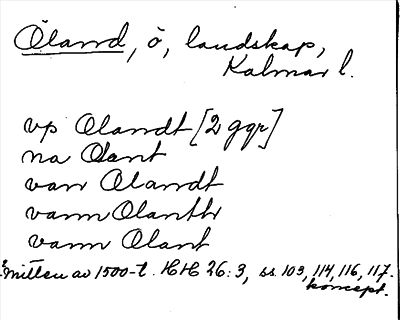 Öland, ö, landskap,
Kalmar l.
vp Olandt [2 ggr]
na Olant
van Olandt
vann Olanthr
vann Olant
Mitten av 1500-t. HH 26:3, ss. 103, 114, 116, 117.
koncept.